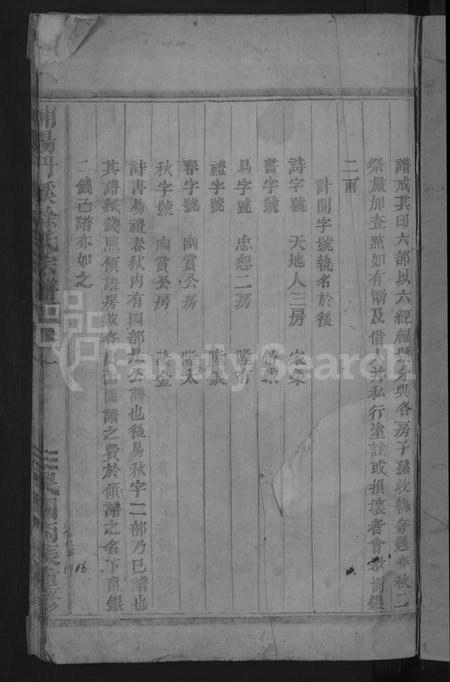 譜成其印六部以六經編號分與各房子孫收執每遇春秋二
祭嚴加查點如有鬻及借 并私行塗註或損壞者會衆罰銀
二兩
計開字號執名於後
詩字號 天地人三房 家榮
書字號
易字號 忠恕二房
禮字號
春字號 幽賞公房 隆太
秋字號 幽賞公房 隆金
詩書易禮春秋內有四部是公譜也後易秋字二部乃己譜也
其譜紙錢照領譜房 各 圓譜之費於領譜之名下 銀
二錢己譜亦如之
浦陽 徐氏宗譜 卷 一
民國
16
FamilySearch